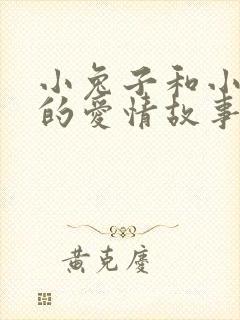 小兔子和小
的爱情故事
黄克庆